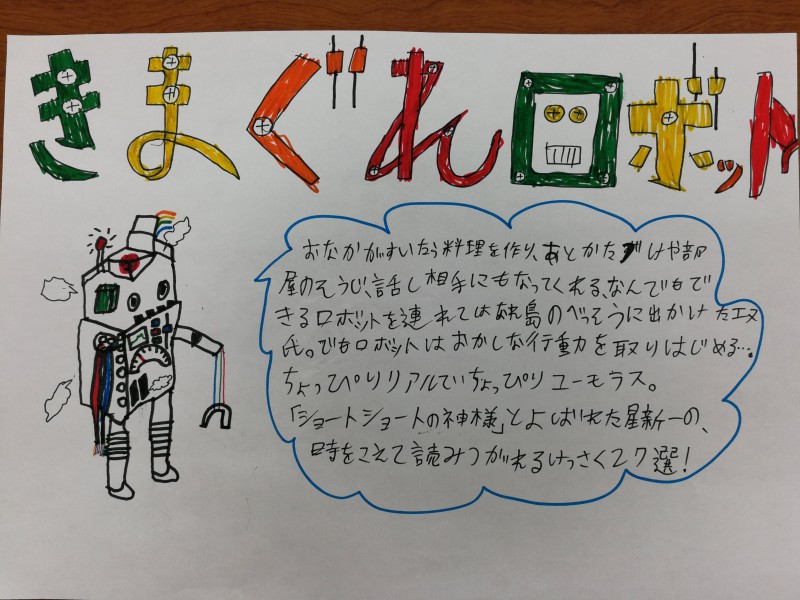 きまぐれロボット
おなかがすいたら料理を作り、あとかたづけや部
屋のそうじ、話し相手にもなってくれる、なんでもで
きるロボットを連れてはなれ島のべっそうに出かけたエヌ
氏。でもロボットはおかしな行動を取りはじめる…。
ちょっぴりリアルで、ちょっぴりユーモラス。
「ショートショートの神様」とよばれた星新一の、
時をこえて読みつがれるけっさく27選!